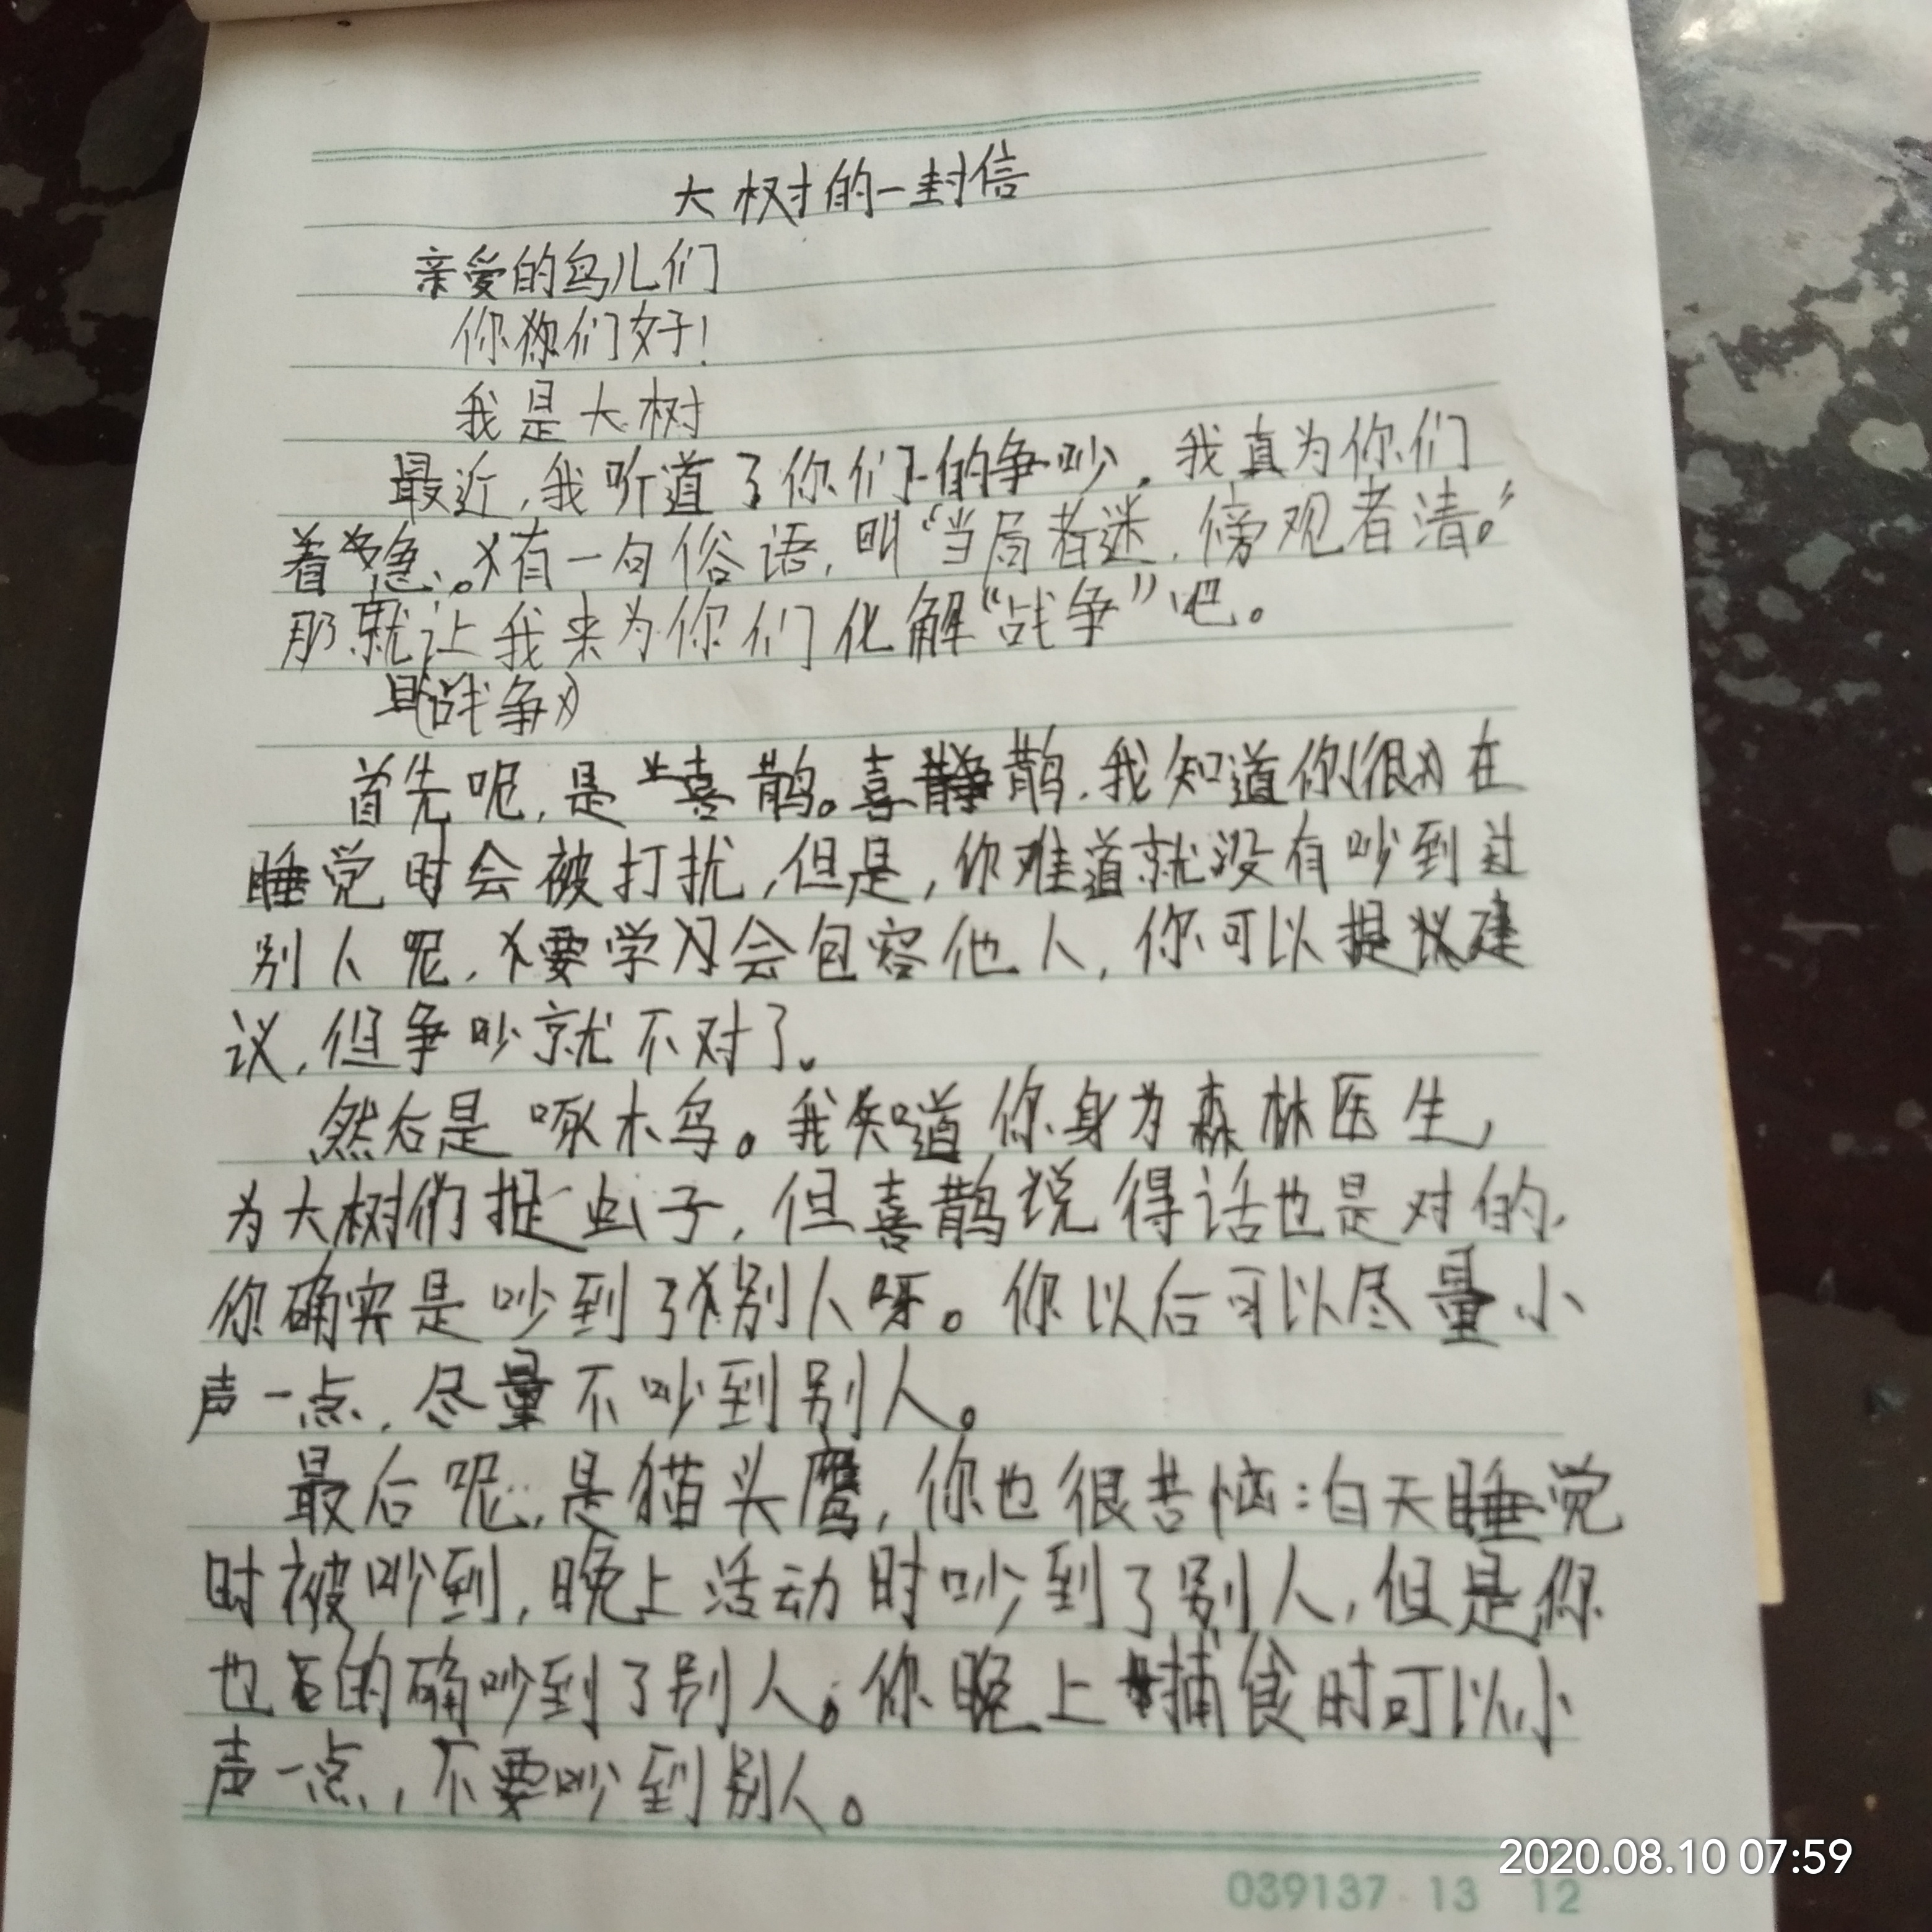 大树的一封信
亲爱的鸟儿们
你你们好！
我是大树
最近，我听道了你们的争吵，我真为你们
着急。有一句俗语，叫“当局者迷，傍观者清。”
那就让我来为你们化解“战争”吧。
战争
首先呢，是喜鹊。喜鹊，我知道你很在
睡觉时会被打扰，但是，你难道就没有吵到过
别人呢，要学习会包容他人，你可以提议建
议，但争吵就不对了。
然后是啄木鸟。我知道你身为森林医生，
为大树们捉虫子，但喜鹊说得话也是对的，
你确实是吵到了别人呀。你以后可以尽量小
声一点，尽量不吵到别人。
最后呢，是猫头鹰，你也很苦恼：白天睡觉
时被吵到，晚上活动时吵到了别人，但是你
也的确吵到了别人。你晚上捕食时可以小
声一点，不要吵到别人。
2020.08.10 07:59
039137 13 12